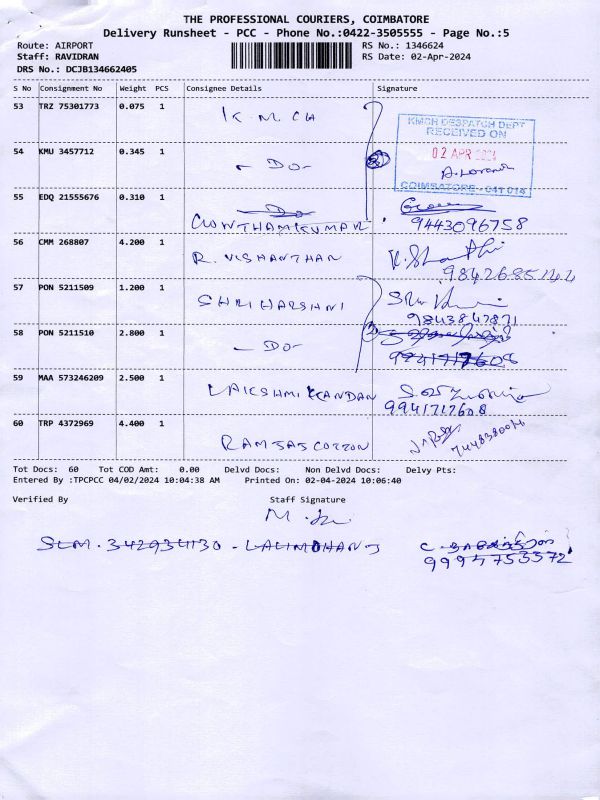 THE PROFESSIONAL COURIERS, COIMBATORE
Delivery Runsheet - PCC - Phone No.:0422-3505555 - Page No.:5
Route: AIRPORT RS No.: 1346624
Staff: RAVIDRAN RS Date: 02-Apr-2024
DRS No.: DCJB134662405
S No Consignment No Weight PCS Consignee Details Signature
53 TRZ 75301773 0.075 1 K.M.CH
KMCH DESPATCH DEPT
RECEIVED ON
02 APR 2024
COIMBATORE - 641 014
54 KMU 3457712 0.345 1 - DO - 2
55 EDQ 21555676 0.310 1 - Do
GOWTHAMKUMAR 9443096758
56 CMM 268807 4.200 1 R. VISHANTHAN
9842685144
57 PON 5211509 1.200 1 SHRIHARSHNI
9843847871
58 PON 5211510 2.800 1 - DO - 2
9941717608
59 MAA 573246209 2.500 1 LAKSHMIKANDAN
9941717608
60 TRP 4372969 4.400 1 RAMSAS COTTON
Tot Docs: 60 Tot COD Amt: 0.00 Delvd Docs: Non Delvd Docs: Delvy Pts:
Entered By :TPCPCC 04/02/2024 10:04:38 AM Printed On: 02-04-2024 10:06:40
Verified By Staff Signature
SLM. 342934130 - LALIMOHAN J
9994753572